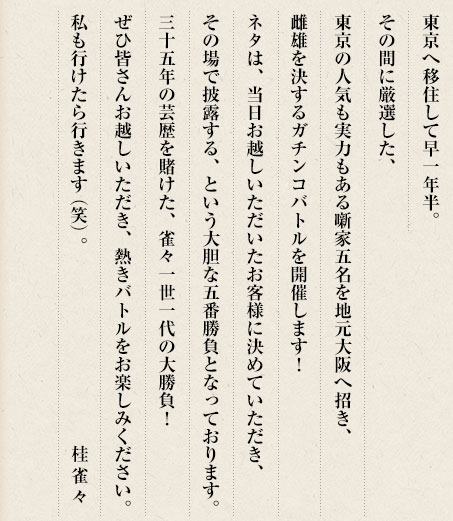 東京へ移住して早一年半。
その間に厳選した、
東京の人気も実力もある噺家五名を地元大阪へ招き、
雌雄を決するガチンコバトルを開催します！
ネタは、当日お越しいただいたお客様に決めていただき、
その場で披露する、という大胆な五番勝負となっております。
三十五年の芸歴を賭けた、雀々一世一代の大勝負！
ぜひ皆さんお越しいただき、熱きバトルをお楽しみください。
私も行けたら行きます（笑）。
桂雀々